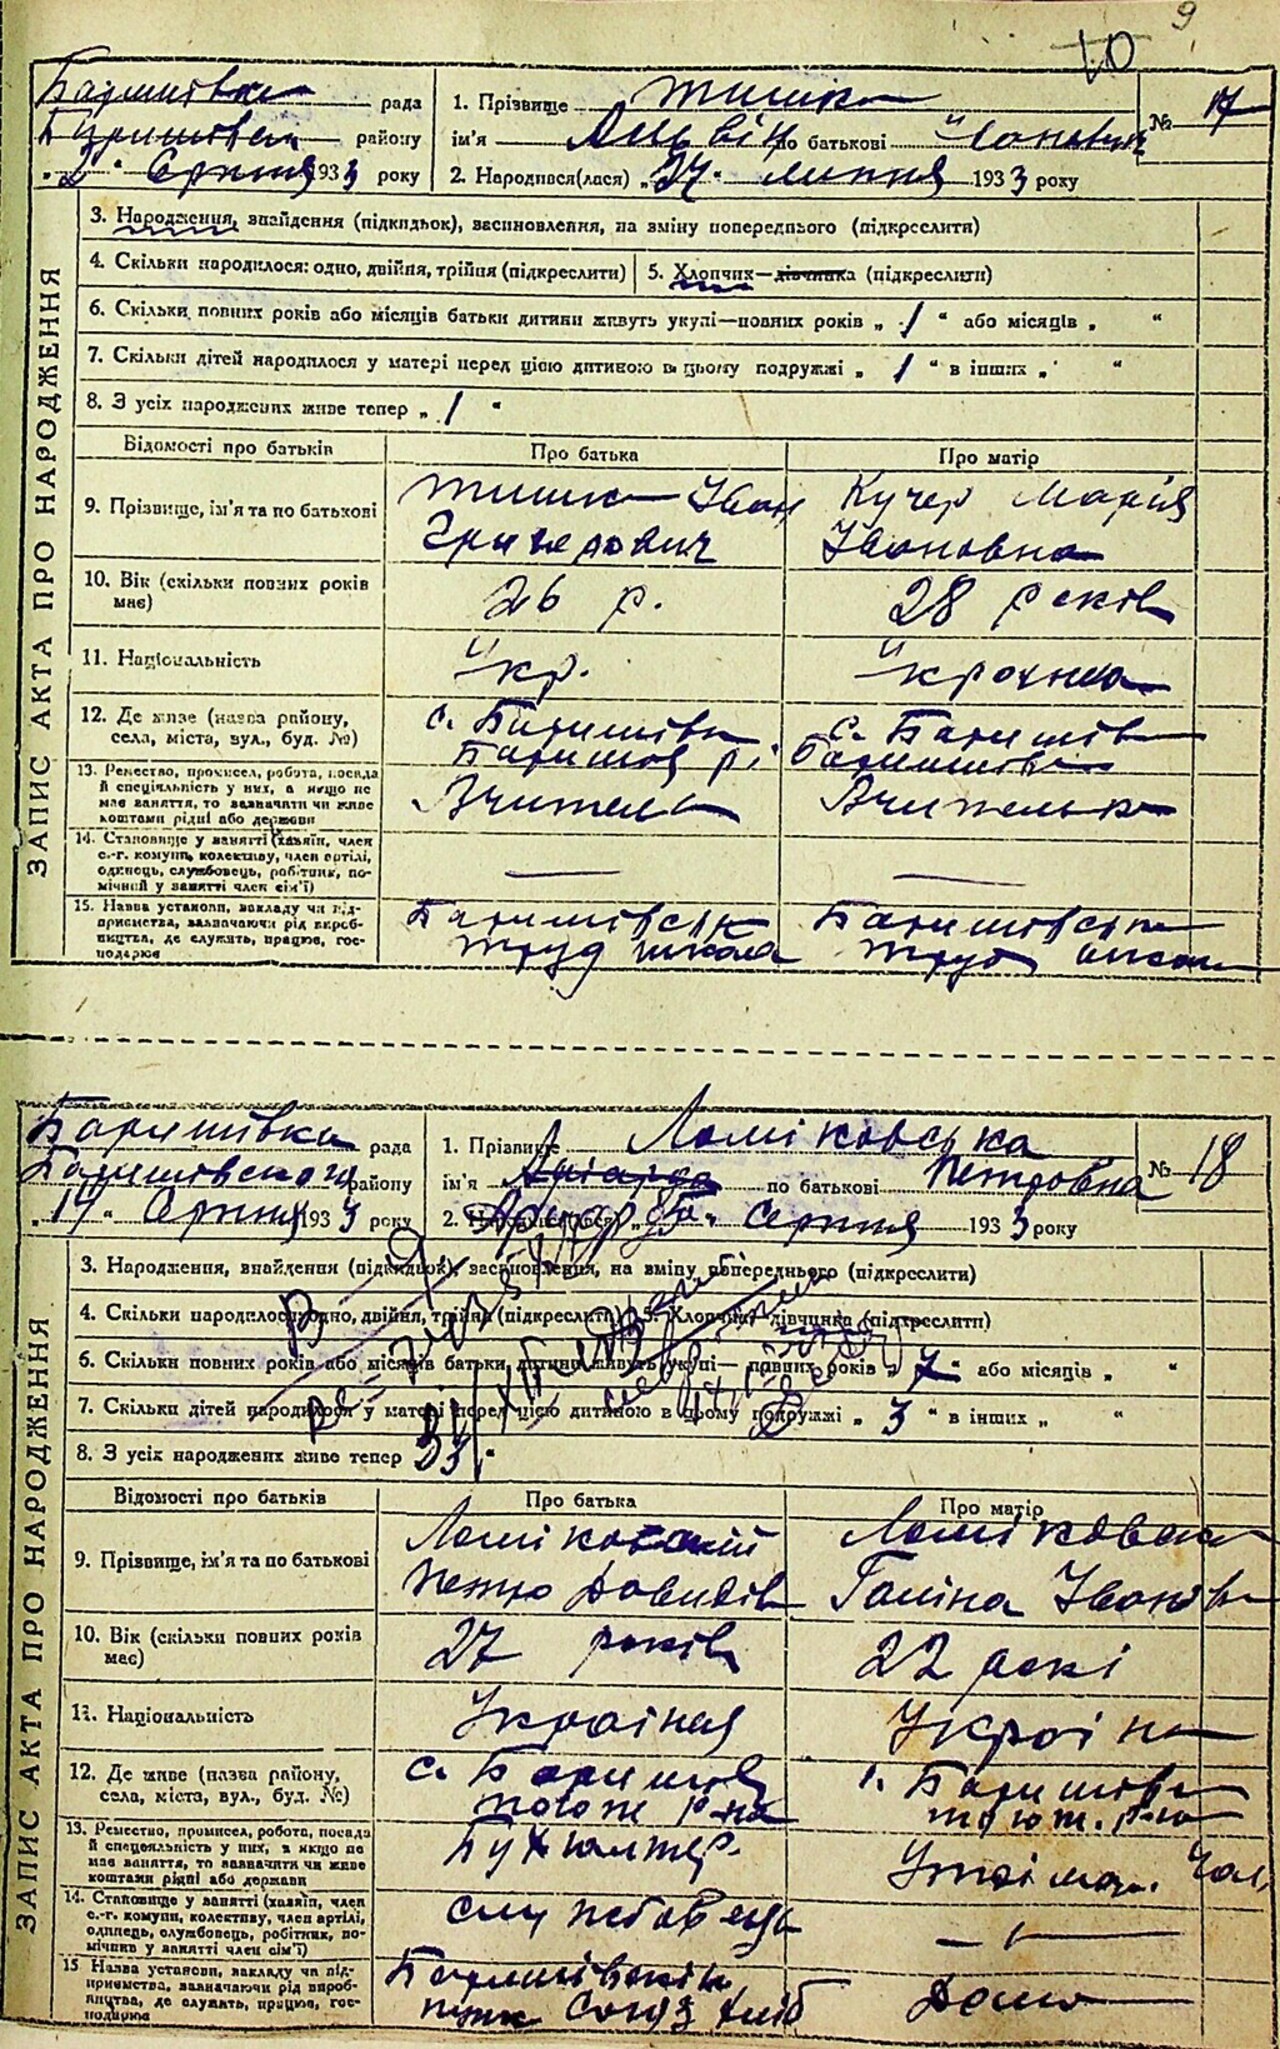 9
10
Баришівка рада
Баришівськ району
"2" Серпня 1933 року
1. Прізвище Тишко
ім'я Альвін по батькові Іванович
2. Народився(лася) "27" липня 1933 року
№ 17
ЗАПИС АКТА ПРО НАРОДЖЕННЯ
3. Народження, знайдення (підкидьок), засиновлення, на зміну попереднього (підкреслити)
4. Скільки народилося: одно, двійня, трійня (підкреслити) 5. Хлопчик—дівчинка (підкреслити)
6. Скільки повних років або місяців батьки дитини живуть укупі—повних років „ 1 “ або місяців „ “
7. Скільки дітей народилося у матері перед цією дитиною в цьому подружжі „ 1 “ в інших „ “
8. З усіх народжених живе тепер „ 1 “
Відомості про батьків Про батька Про матір
9. Прізвище, ім'я та по батькові
Тишко Іван
Григорович
Кучер Марія
Івановна
10. Вік (скільки повних років має)
26 р.
28 років
11. Національність
Укр.
Українка
12. Де живе (назва району, села, міста, вул., буд. №)
с. Баришівка
Баришів р.
с. Баришів
Баришівськ
13. Ремество, промисел, робота, посада
й спеціяльність у них, а якщо не
має заняття, то зазначати чи живе
коштами рідні або держави
Вчитель
Вчителька
14. Становище у занятті (хазяїн, член
с.-г. комуни, колективу, член артілі,
одинець, службовець, робітник, по-
мічний у занятті член сім'ї)
15. Назва установи, закладу чи під-
приємства, зазначаючи рід вироб-
ництва, де служить, працює, гос-
подарює
Баришівськ
труд школа
Баришівськ
труд школа
Баришівка рада
Баришівського району
"14" Серпня 1933 року
1. Прізвище Ломіковська
ім'я по батькові Петровна
2. Народився(лася) Серпня 1933 року
№ 18
ЗАПИС АКТА ПРО НАРОДЖЕННЯ
3. Народження, знайдення (підкидьок), засиновлення, на зміну попереднього (підкреслити)
4. Скільки народилося: одно, двійня, трійня (підкреслити) 5. Хлопчик—дівчинка (підкреслити)
6. Скільки повних років або місяців батьки дитини живуть укупі— повних років „ 7 “ або місяців „ “
7. Скільки дітей народилося у матері перед цією дитиною в цьому подружжі „ 3 “ в інших „ “
8. З усіх народжених живе тепер 3
Відомості про батьків Про батька Про матір
9. Прізвище, ім'я та по батькові
Ломіковський
Петро Давидів
Ломіковськ
Галіна Іванів
10. Вік (скільки повних років має)
27 років
22 рокі
11. Національність
Україная
Україн
12. Де живе (назва району, села, міста, вул., буд. №)
с. Баришів
того ж р-на
с. Баришівк
того ж. р-но
13. Ремество, промисел, робота, посада
й спеціяльність у них, а якщо не
має заняття, то зазначати чи живе
коштами рідні або держави
Бухгалтер.
Утріман. Чол.
14. Становище у занятті (хазяїн, член
с.-г. комуни, колективу, член артілі,
одинець, службовець, робітник, по-
мічник у занятті член сім'ї)
службовець
15. Назва установи, закладу чи під-
приємства, зазначаючи рід вироб-
ництва, де служить, працює, гос-
подарює
Баришівський
пунк Союз хліб
Дома